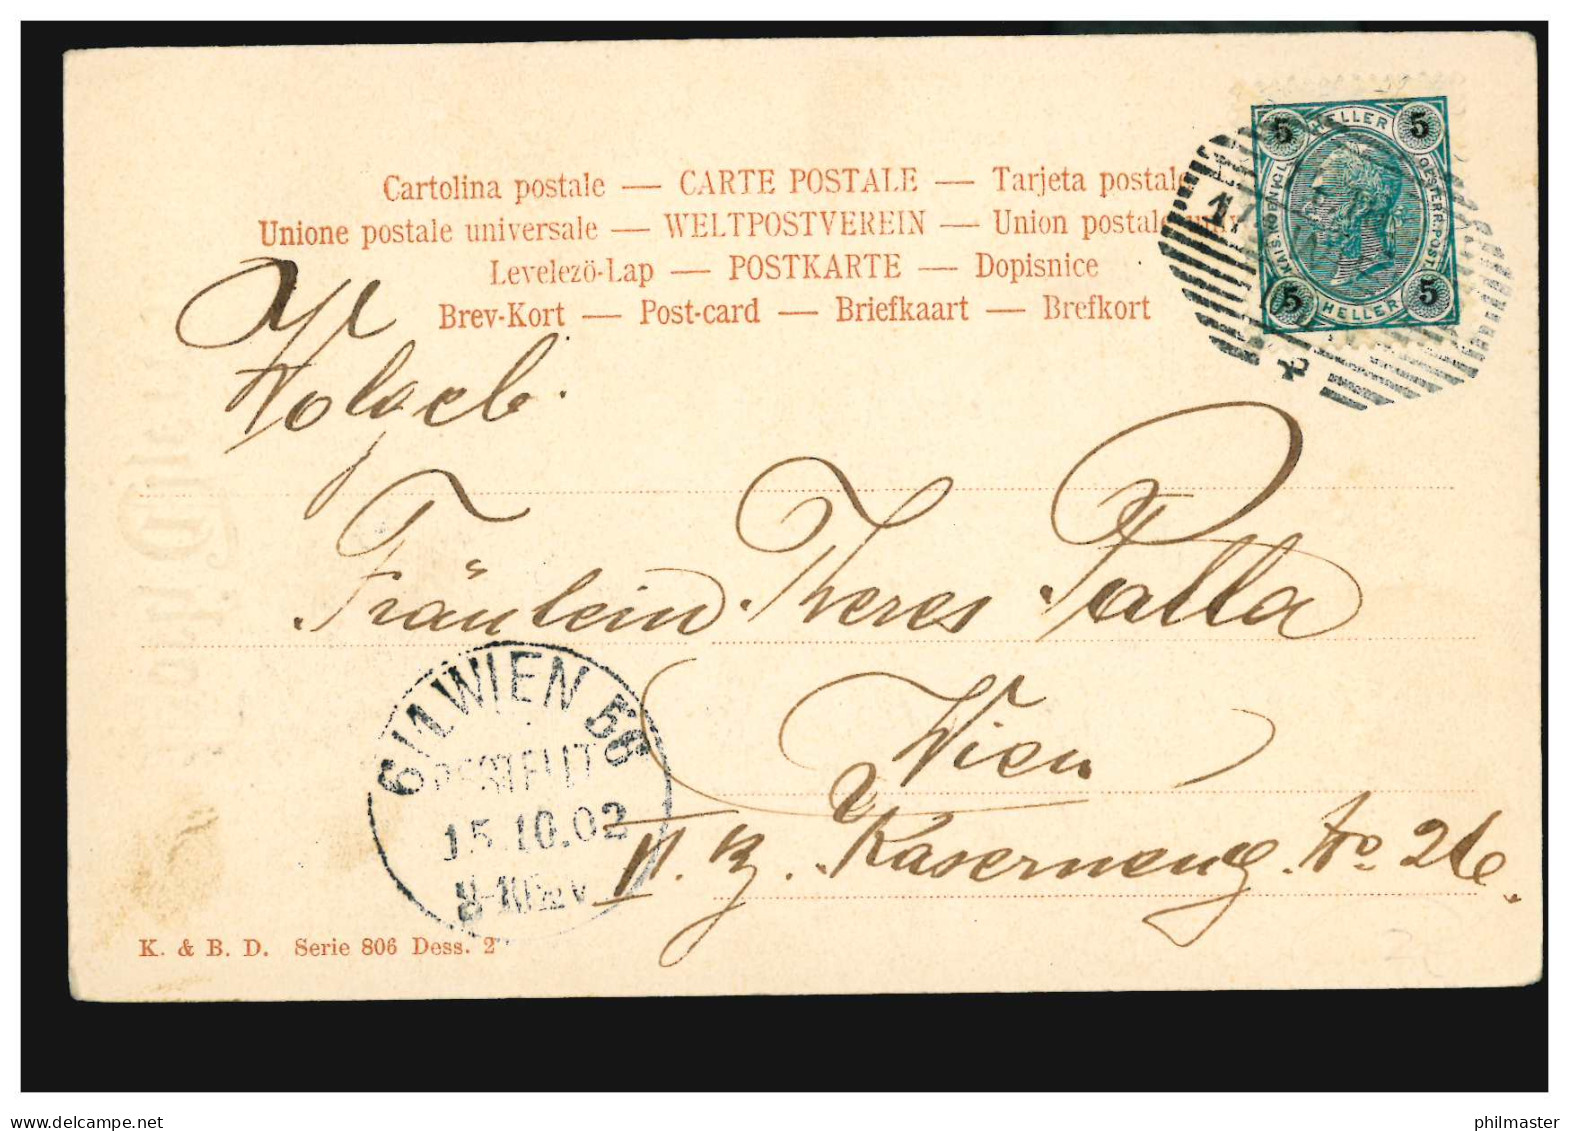 Cartolina postale — CARTE POSTALE — Tarjeta postal
Unione postale universale — WELTPOSTVEREIN — Union postale univ
Levelezö-Lap — POSTKARTE — Dopisnice
Brev-Kort — Post-card — Briefkaart — Brefkort
5 HELLER 5
KAIS. KÖNIGL. OESTERR. POST
5 HELLER 5
Wohlgeb.
Fräulein Theres Palla
Wien
6/1 WIEN 56
BESTELLT
15.10.02
II. Bz. Kaserneng. No 26.
K. & B. D. Serie 806 Dess. 2
www.delcampe.net
philmaster